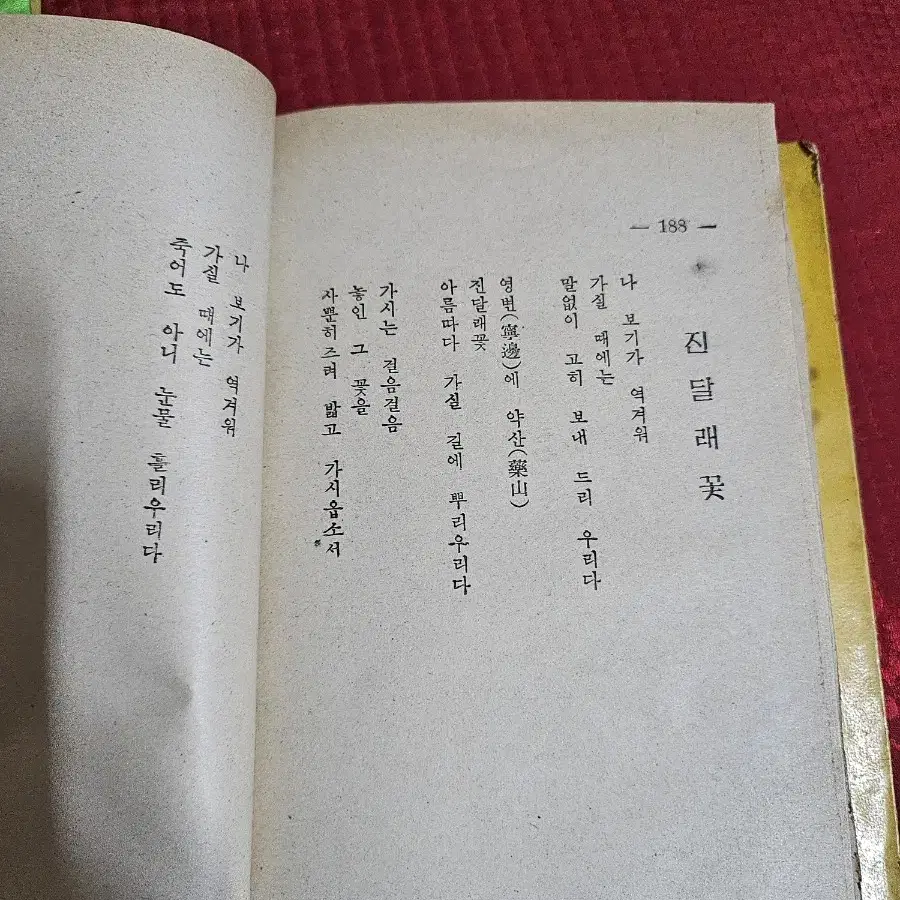 — 188 —
진달래꽃
나 보기가 역겨워
가실 때에는
말없이 고히 보내 드리 우리다
영변(寧邊)에 약산(藥山)
진달래꽃
아름따다 가실 길에 뿌리우리다
가시는 걸음걸음
놓인 그 꽃을
사뿐히즈려 밟고 가시옵소서
나 보기가 역겨워
가실 때에는
죽어도 아니 눈물 흘리우리다